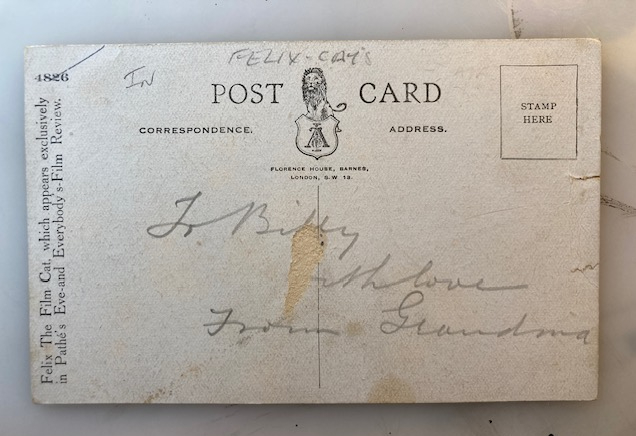 FELIX - CAT'S
IN
POST CARD
CORRESPONDENCE.
ADDRESS.
FLORENCE HOUSE, BARNES,
LONDON, S.W 13.
STAMP
HERE
4826
Felix The Film Cat, which appears exclusively
in Pathé's Eve-and Everybody's-Film Review.
To Billy
ith love
From Grandma